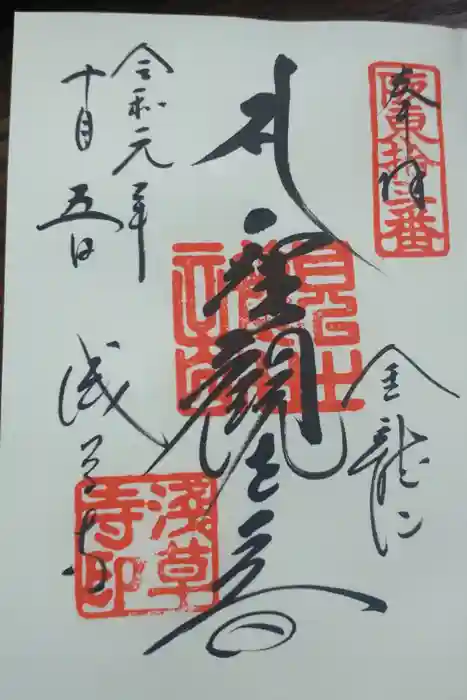 奉拝
坂東拾三番
金龍山
聖觀世音
令和元年
十月五日
浅草寺
淺草寺印